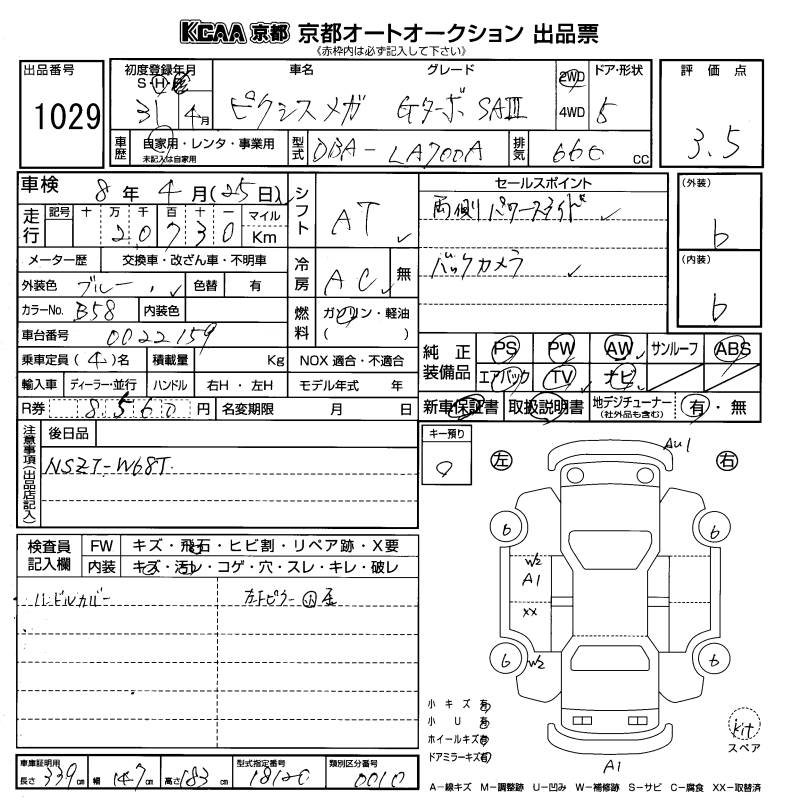 KCAA 京都 京都オートオークション 出品票
《赤枠内は必ず記入して下さい》
出品番号 1029
初度登録年月 S・H・ 31年 4月
車名 グレード
ピクシスメガ Gターボ SAⅢ
2WD 4WD
ドア・形状 5
評価点 3.5
車歴 自家用・レンタ・事業用
未記入は自家用
型式 DBA-LA700A
排気 660 cc
車検 8年 4月(25日)
シフト AT
セールスポイント
両側パワースライド
バックカメラ
(外装) b
(内装) b
走行 記号 十 万 千 百 十 一 マイル Km
20730
メーター歴 交換車・改ざん車・不明車
冷房 AC 無
外装色 ブルー 色替 有
カラーNo. B58 内装色
燃料 ガソリン・軽油
( )
車台番号 0022159
乗車定員 (4)名 積載量 Kg NOX 適合・不適合
輸入車 ディーラー・並行 ハンドル 右H・左H モデル年式 年
R券 8560円 名変期限 月 日
純正装備品 PS PW AW サンルーフ ABS
エアバック TV ナビ
新車保証書 取扱説明書 地デジチューナー(社外品も含む) 有・無
注意事項(出品店記入)
後日品
NSZT-W68T
キー預り 0
左 右
AU1
検査員記入欄 FW キズ・飛石・ヒビ割・リペア跡・X要
内装 キズ・汚レ・コゲ・穴・スレ・キレ・破レ
ハンドルカバー
b b
W2
A1
XX
b W2 b
小キズ有
小U有
ホイールキズ有
ドアミラーキズ有
Kit
スペア
A1
車庫証明用 長さ 339cm 幅 147cm 高さ 183cm
型式指定番号 18120
類別区分番号 0010
A-線キズ M-調整跡 U-凹み W-補修跡 S-サビ C-腐食 XX-取替済